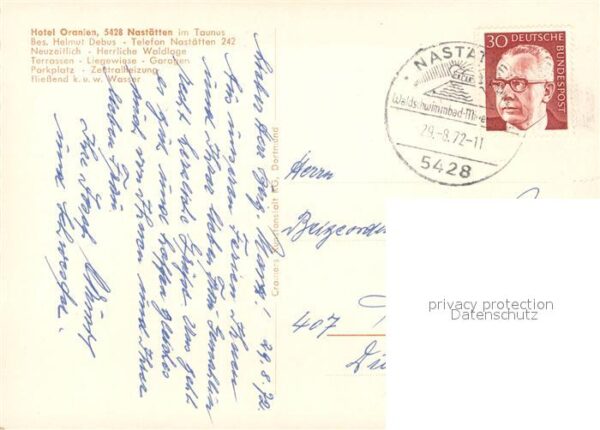 Hotel Oranien, 5428 Nastätten im Taunus
Bes. Helmut Debus - Telefon Nastätten 242
Neuzeitlich - Herrliche Waldlage
Terrassen - Liegewiese - Garagen
Parkplatz - Zentralheizung
Fließend k. u. w. Wasser
29.8.72
Aus unseren Ferien Ihnen
und Ihrer lieben Frau Gemahlin
recht herzliche Grüße. Uns geht
es gut und hoffen gleiches
auch von Ihnen und Ihrer
lieben Frau.
Ihr Josef
und Schwester.
Cramers Kunstanstalt KG, Dortmund
NASTÄT
Waldschwimmbad
29.-8.72-11
5428
30
DEUTSCHE
BUNDESPOST
Herrn
407
privacy protection
Datenschutz